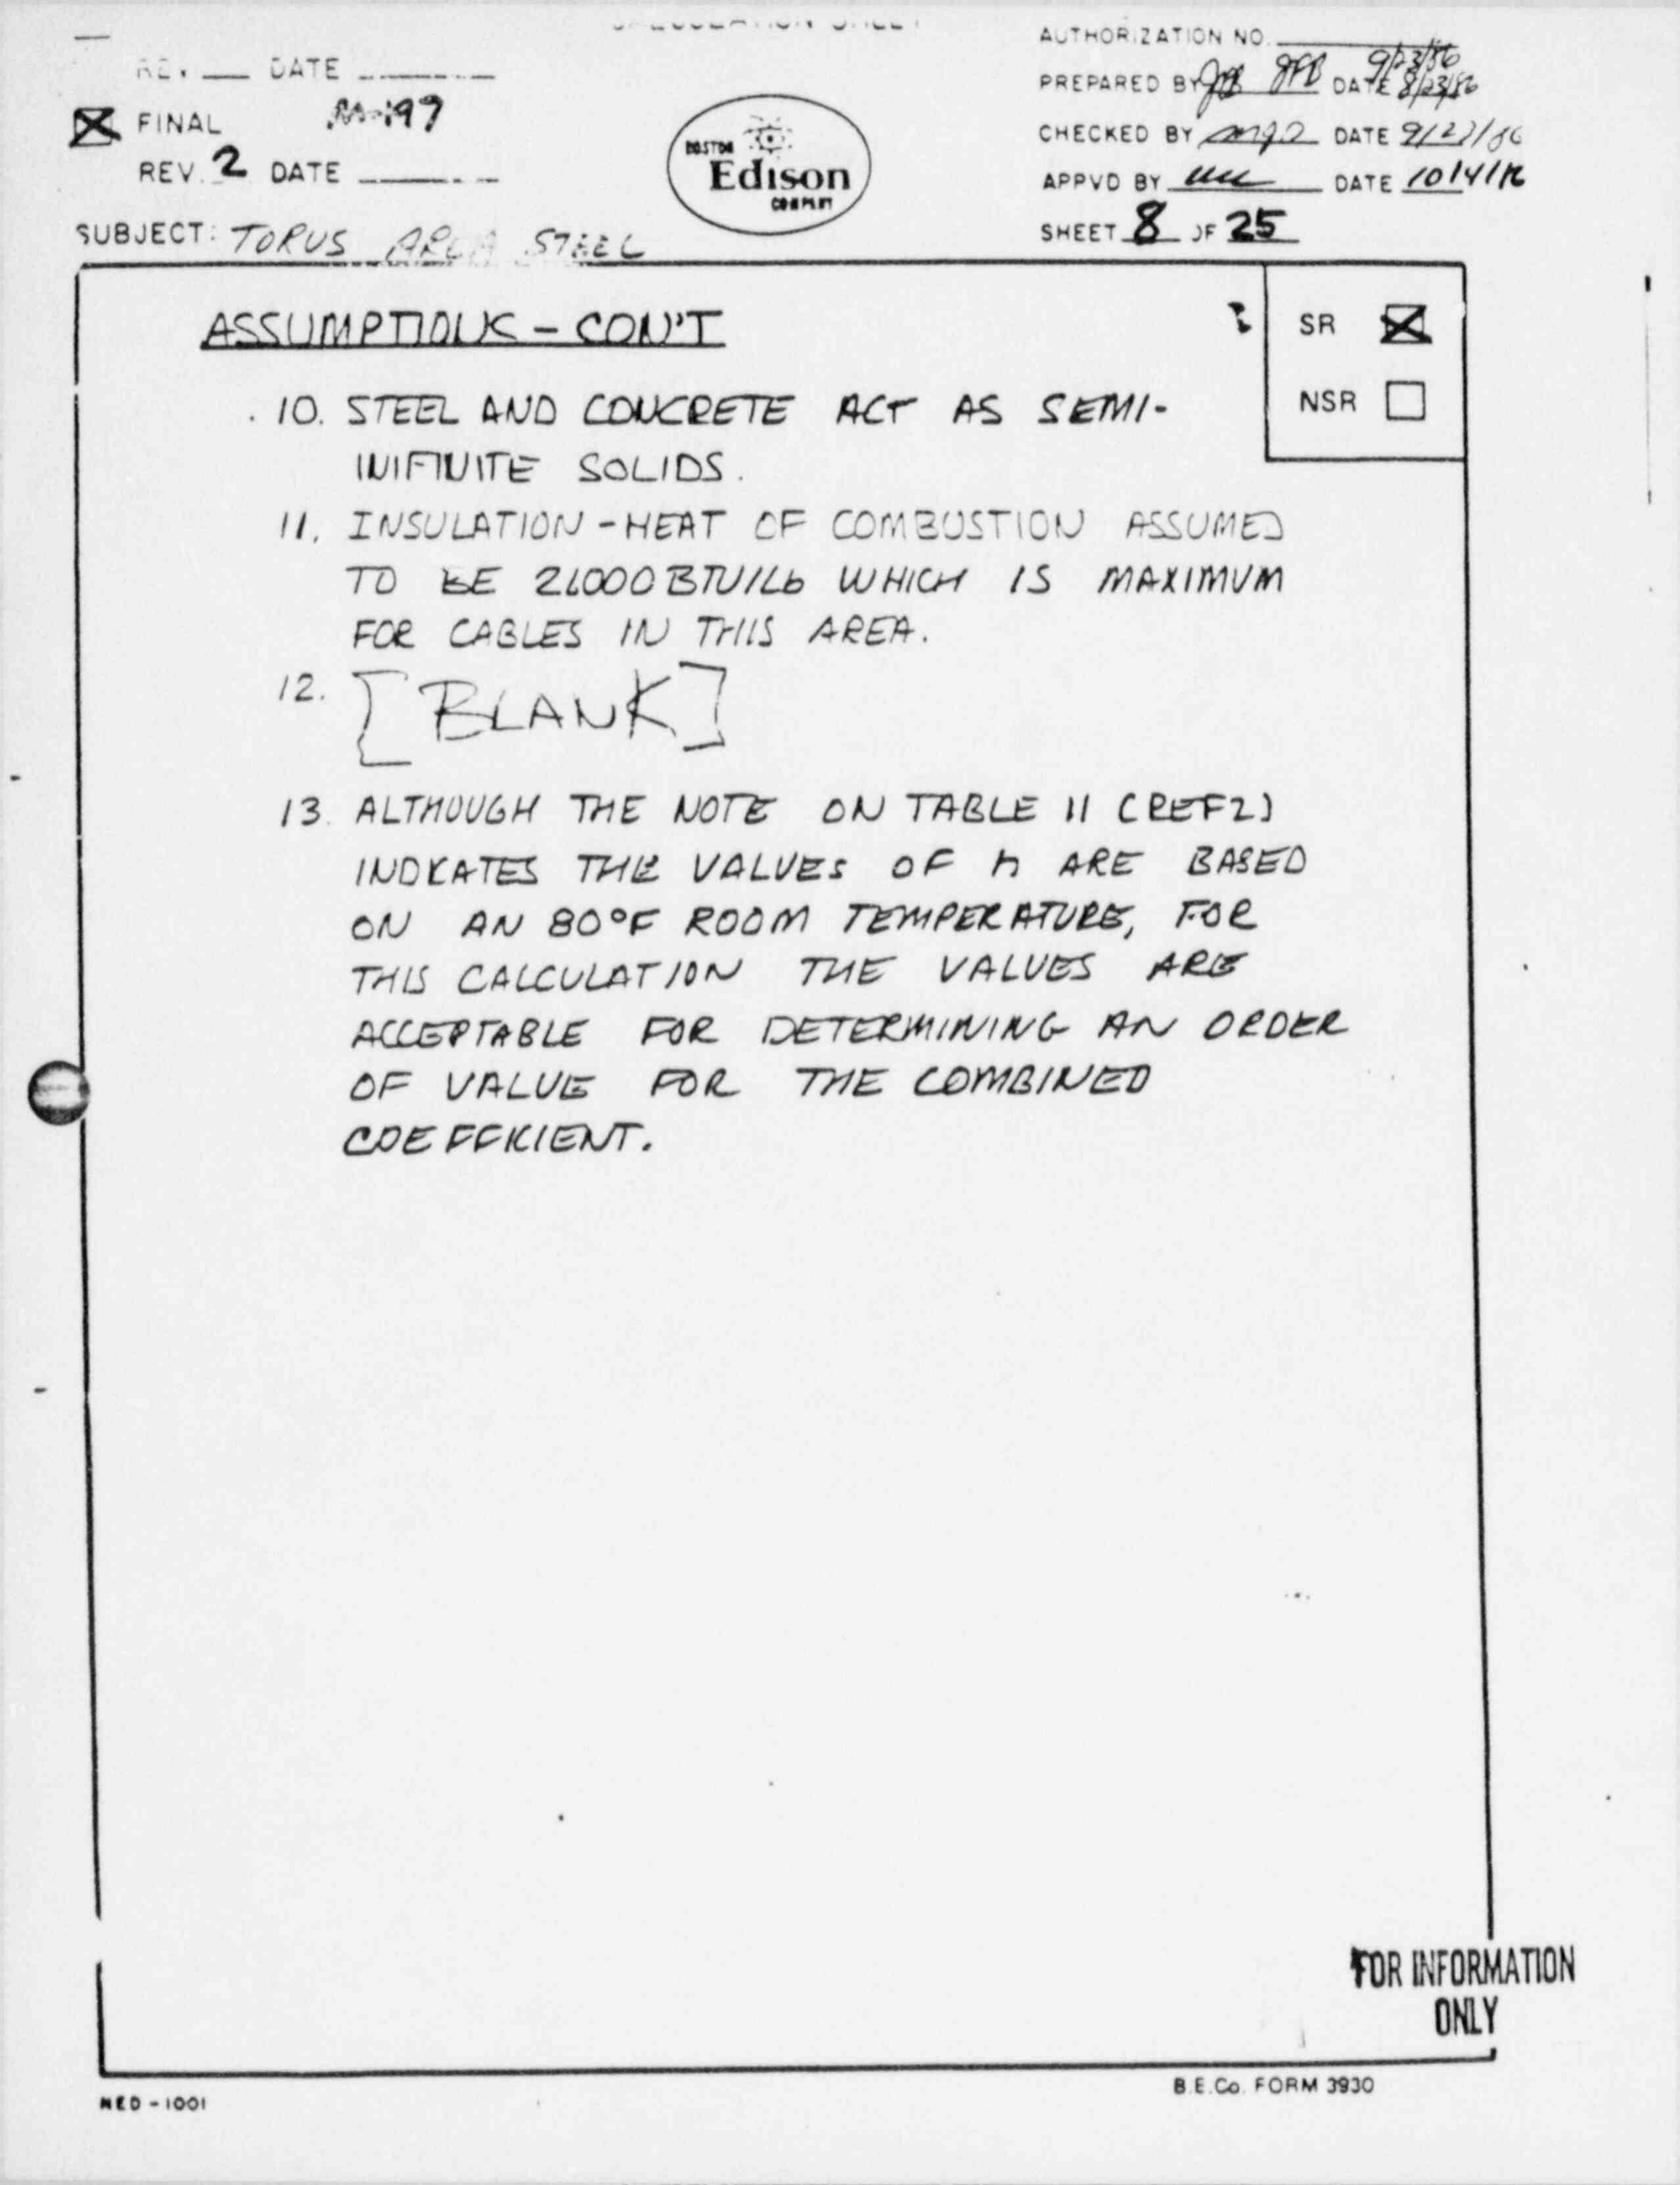 CALCULATION SHEET
REV. DATE
FINAL M-197
REV. 2 DATE
SUBJECT: TORUS AREA STEEL
BOSTON
Edison
COMPANY
AUTHORIZATION NO.
PREPARED BY JFB DATE 9/23/86 8/23/86
CHECKED BY DATE
APPVD BY DATE
SHEET 8 OF 25
SR
NSR
ASSUMPTIONS - CON'T
10. STEEL AND CONCRETE ACT AS SEMI-
INIFINITE SOLIDS.
11. INSULATION - HEAT OF COMBUSTION ASSUMED
TO BE BTU/Lb WHICH IS MAXIMUM
FOR CABLES IN THIS AREA.
12. [BLANK]
13. ALTHOUGH THE NOTE ON TABLE 11 (REF2)
INDICATES THE VALUES OF h ARE BASED
ON AN 80°F ROOM TEMPERATURE, FOR
THIS CALCULATION THE VALUES ARE
ACCEPTABLE FOR DETERMINING AN ORDER
OF VALUE FOR THE COMBINED
COEFFICIENT.
FOR INFORMATION
ONLY
NED-1001
B.E.Co. FORM 3930